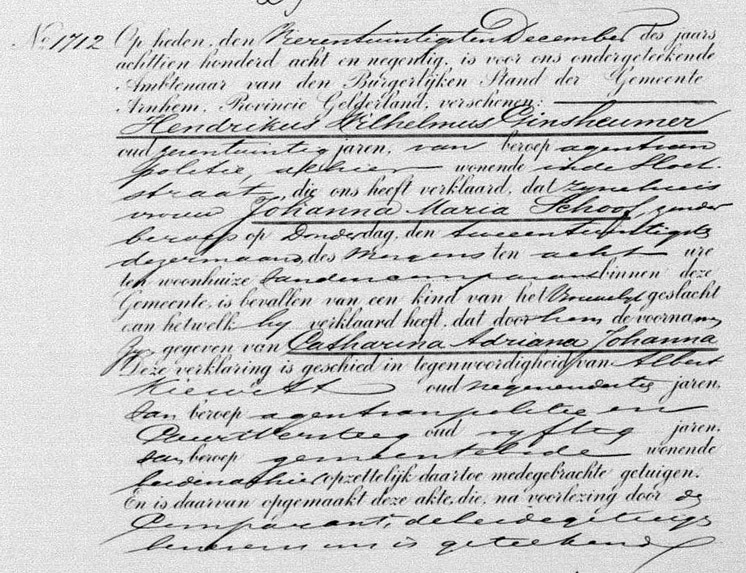 No. 1712 Op heden, den Vierentwintigsten December des jaars
achttien honderd acht en negentig, is voor ons ondergeteekende
Ambtenaar van den Burgerlijken Stand der Gemeente
Arnhem, Provincie Gelderland, verschenen:
Hendrikus Wilhelmus Ginsheumer
oud zeventwintig jaren, van beroep agent van
politie, alhier wonende in de Sloet-
straat, die ons heeft verklaard, dat zijne huis
vrouw Johanna Maria Schoof, zonder
beroep op Donderdag, den tweeentwintigste
dezer maand, des morgens ten acht ure
ten woonhuize van den comparant binnen deze
Gemeente, is bevallen van een kind van het Vrouwelijk geslacht
aan hetwelk hij verklaard heeft, dat door hem de voornamen
zijn gegeven van Catharina Adriana Johanna
Deze verklaring is geschied in tegenwoordigheid van Albert
oud negenendertig jaren,
van beroep agent van politie en
oud vijftig jaren,
van beroep gemeentebode wonende
beiden alhier opzettelijk daartoe medegebrachte getuigen.
En is daarvan opgemaakt deze akte, die, na voorlezing door de
Comparant, de beide getuigen
benevens ons is geteekend